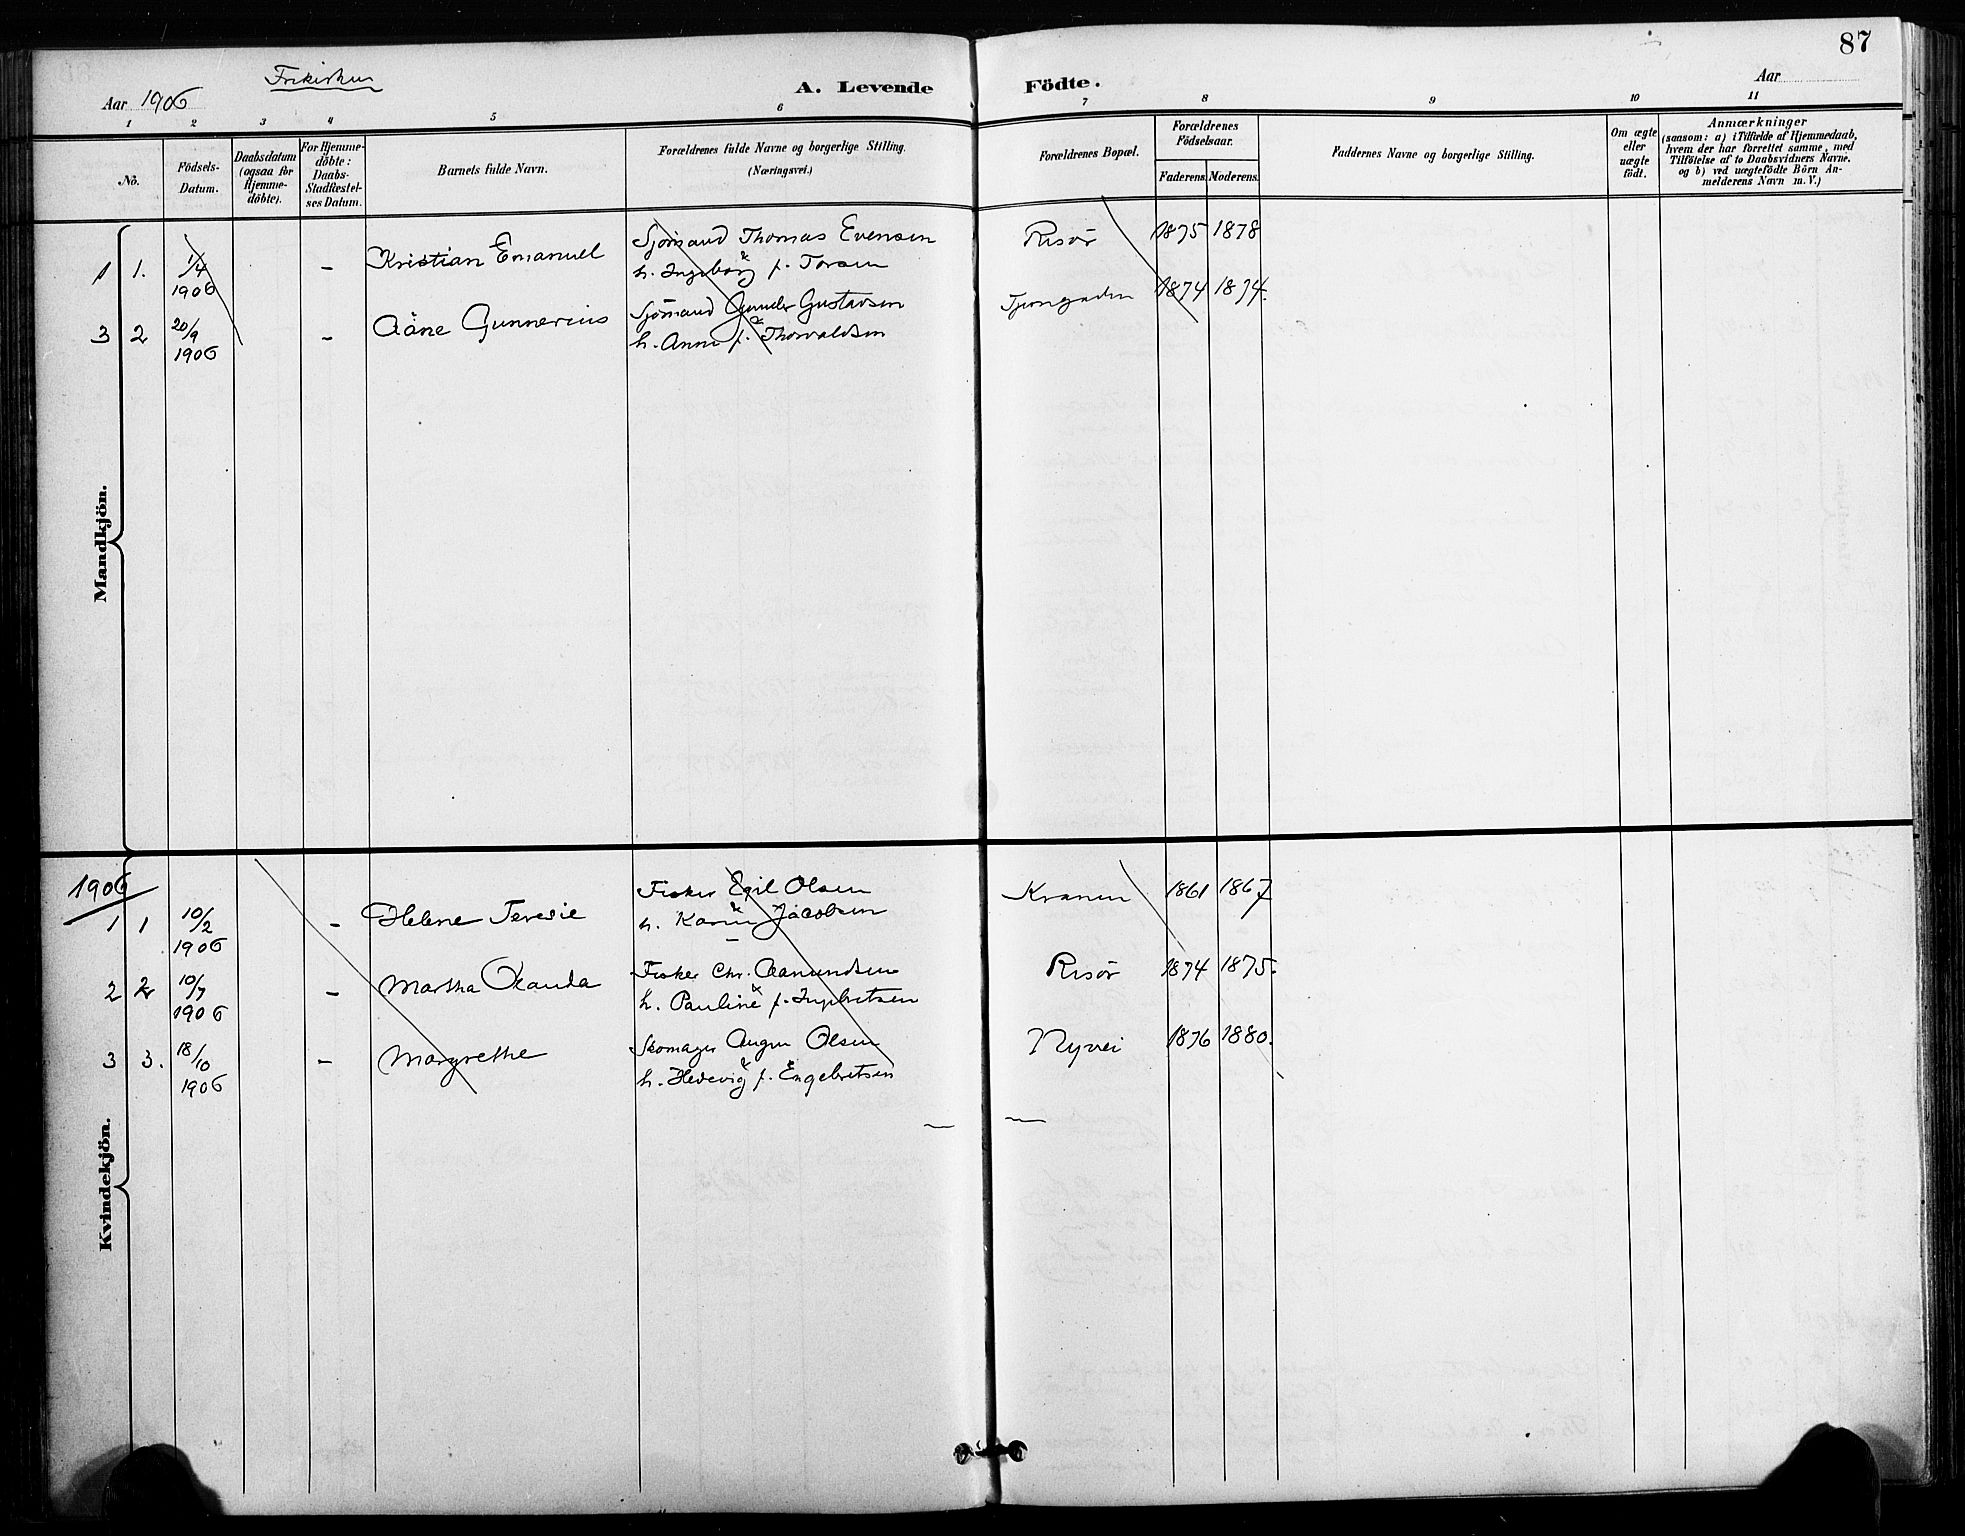 87
Frikirken
Aar 1906
A. Levende Födte.
Aar
1 2 3 4 5 6 7 8 9 10 11
No.
Födsels-
Datum.
Daabsdatum
(ogsaa for
Hjemme-
döbte).
For Hjemme-
döbte:
Daabs-
Stadfæstel-
ses Datum.
Barnets fulde Navn.
Forældrenes fulde Navne og borgerlige Stilling.
(Næringsvei.)
Forældrenes Bopæl.
Forældrenes
Födselsaar.
Faderens. Moderens.
Faddernes Navne og borgerlige Stilling.
Om ægte
eller
uægte
födt.
Anmærkninger
(saasom: a) i Tilfælde af Hjemmedaab,
hvem der har forrettet samme, med
Tilföielse af to Daabsvidners Navne.
og b) ved uægtefödte Börn An-
melderens Navn m. V.)
Mandkjön.
1 1. 1/4 – Kristian Emanuel Sjömand Thomas Evensen Risør 1875 1878
1906 h. Ingeborg f. Torsen
3 2 20/9 – Aåne Gunnerius Sjömand Gunder Gustavsen 1874 1894.
1906 h. Anne f. Thorvaldsen
Kvindekjön.
1906
1 1 10/2 – Helene Teresie Fisker Egil Olsen Kranen 1861 1867
1906 h. Karin Jacobsen
2 2 10/7 – Martha Olauda Fisker Chr. Aamundsen Risør 1874 1875.
1906 h. Pauline f. Ingebretsen
3 3. 18/10 – Margrethe Skomager Olsen Nyvei 1876 1880.
1906 h. Hedevig f. Engebretsen